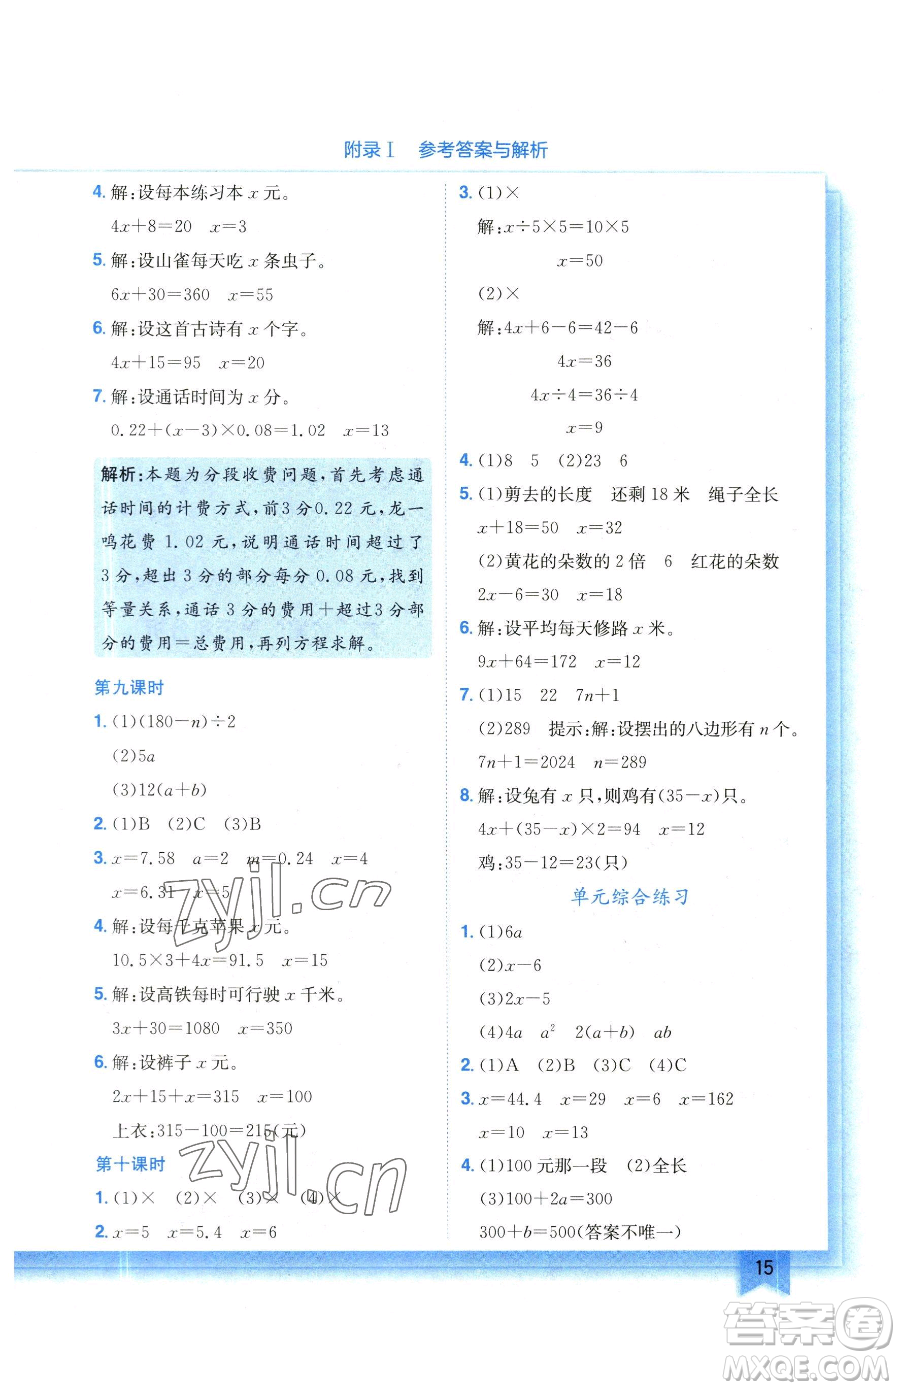 附录Ⅰ 参考答案与解析
4. 解:设每本练习本 x 元。
4x+8=20 x=3
5. 解:设山雀每天吃 x 条虫子。
6x+30=360 x=55
6. 解:设这首古诗有 x 个字。
4x+15=95 x=20
7. 解:设通话时间为 x 分。
0.22+(x-3)×0.08=1.02 x=13
解析:本题为分段收费问题,首先考虑通
话时间的计费方式,前3分0.22元,龙一
鸣花费1.02元,说明通话时间超过了
3分,超出3分的部分每分0.08元,找到
等量关系,通话3分的费用+超过3分部
分的费用=总费用,再列方程求解。
第九课时
1. (1)(180-n)÷2
(2)5a
(3)12(a+b)
2. (1)B (2)C (3)B
3. x=7.58 a=2 m=0.24 x=4
x=6.31 x=5
4. 解:设每千克苹果 x 元。
10.5×3+4x=91.5 x=15
5. 解:设高铁每时可行驶 x 千米。
3x+30=1080 x=350
6. 解:设裤子 x 元。
2x+15+x=315 x=100
上衣:315-100=215(元)
第十课时
1. (1)× (2)× (3)× (4)×
2. x=5 x=5.4 x=6
3. (1)×
解:x÷5×5=10×5
x=50
(2)×
解:4x+6-6=42-6
4x=36
4x÷4=36÷4
x=9
4. (1)8 5 (2)23 6
5. (1)剪去的长度 还剩18米 绳子全长
x+18=50 x=32
(2)黄花的朵数的2倍 6 红花的朵数
2x-6=30 x=18
6. 解:设平均每天修路 x 米。
9x+64=172 x=12
7. (1)15 22 7n+1
(2)289 提示:解:设摆出的八边形有 n 个。
7n+1=2024 n=289
8. 解:设兔有 x 只,则鸡有(35-x)只。
4x+(35-x)×2=94 x=12
鸡:35-12=23(只)
单元综合练习
1. (1)6a
(2)x-6
(3)2x-5
(4)4a a² 2(a+b) ab
2. (1)A (2)B (3)C (4)C
3. x=44.4 x=29 x=6 x=162
x=10 x=13
4. (1)100元那一段 (2)全长
(3)100+2a=300
300+b=500(答案不唯一)
15
zyjl.cn
zyjl.cn
答案圈
MXQE.COM